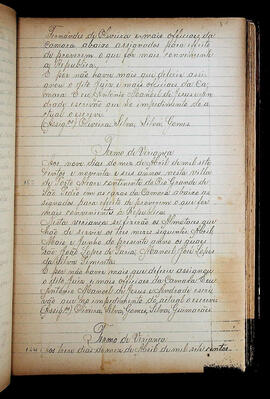 Fernandes de Oliveira e mais officiaes da
Camara abaixo assignados para effeito
de proverem o que for mais conveniente
a Republica.
E por não haver mais que deferir assi-
gnou o dito Juiz e mais officiaes da Ca-
mara. Eu Antonio Manoel de Jesus An-
drade escrivão que no impedimento do
actual o escrevi.
(Assig.os) Oliveira, Silva, Silva, Gomes.
Termo de Vereança
Aos nove dias do mez de Abril de mil sete
centos e setenta e seis annos, nesta villa
de Porto Alegre continente do Rio Grande de
São Pedro em os Paços da Camara abaixo as-
signados para effeito de proverem o que for
mais conveniente á Republica.
Nesta vereança se fizerão os Almotaces que
hão de servir os tres mezes seguintes Abril
Maio e Junho do presente anno os quaes
são João Lopes de Faria, Manoel José Lopes
da Silva Pimentas.
E por não haver mais que deferir assignou
o dito juiz e mais officiaes da Camara. Eu
Antonio Manoel de Jesus e Andrade escri-
vão que no impedimento do actual o escrevi.
(Assig.os) Oliveira, Silva, Gomes, Silva, Guimarães
Termo de Vereança
Aos treze dias do mez de Abril de mil sete centos